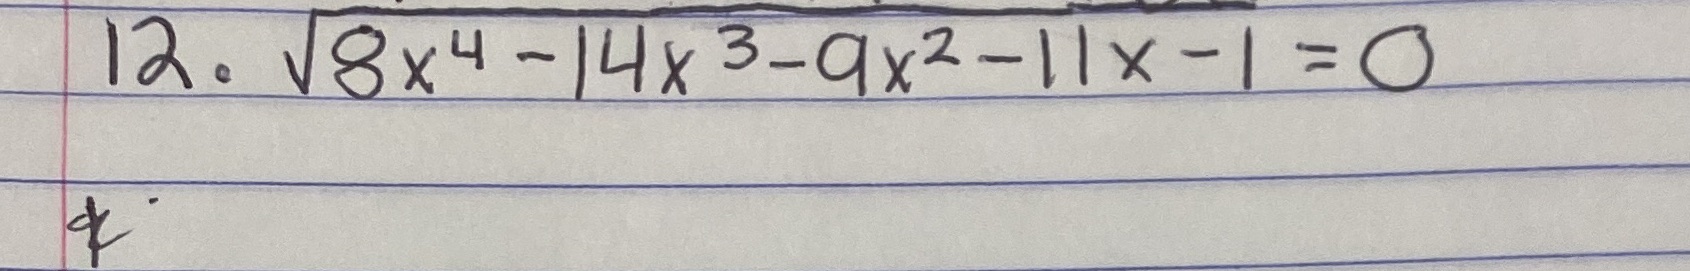 12. √8x⁴-14x³-9x²-11x-1=0